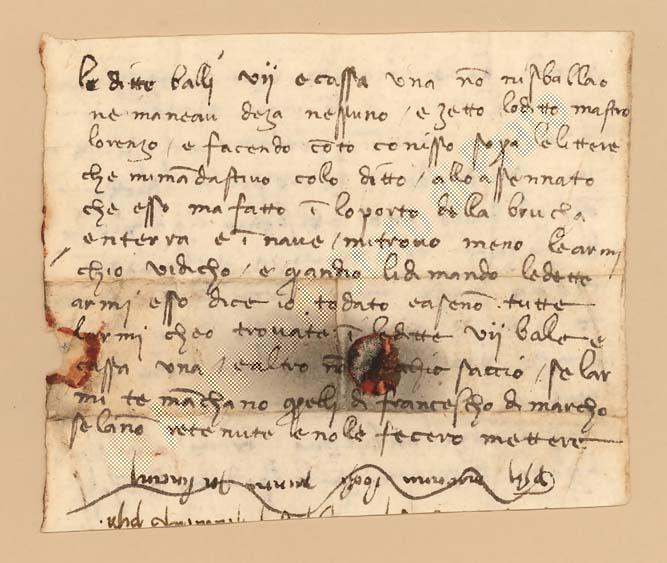 le ditte balli vij e cassa una nō nisballao
ne maneau deza nessuno / e zetto loditto mastro
lorenzo / e facendo cōto conisso sopa le littere
che mi mādastivo colo ditto / allo assennato
che esso ma fatto ī lo porto della brucha
enterra e ī nave / mi trovo meno le armi
chio vidicho / e quandio li dimando le ditte
armi esso dice io to dato easenō tutte
larmi cheo trovate ī le dette vij bale e
cassa una / e altro nō chio saccio / se lar
mi te māchano quelli di francescho di marcho
se lano retenute e nolle fecero mettere